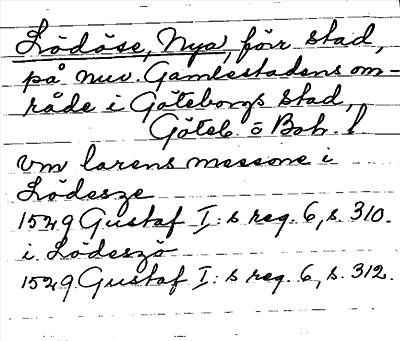 Lödöse, Nya, förr stad,
på nuv. Gamlestadens om-
råde i Göteborgs stad,
Göteb. o Boh. l
vm larens messone i
Lödesze
1529 Gustaf I:s reg. 6, s. 310.
i Lödeszö
1529 Gustaf I:s reg. 6, s. 312.